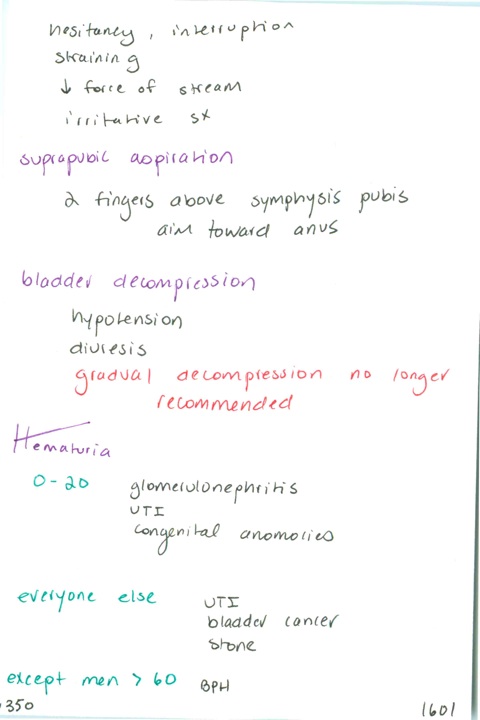 hesitancy, interruption
straining
↓ force of stream
irritative sx
suprapubic aspiration
2 fingers above symphysis pubis
aim toward anus
bladder decompression
hypotension
diuresis
gradual decompression no longer
recommended
Hematuria
0-20 glomerulonephritis
UTI
congenital anomolies
everyone else UTI
bladder cancer
stone
except men > 60 BPH
350 1601